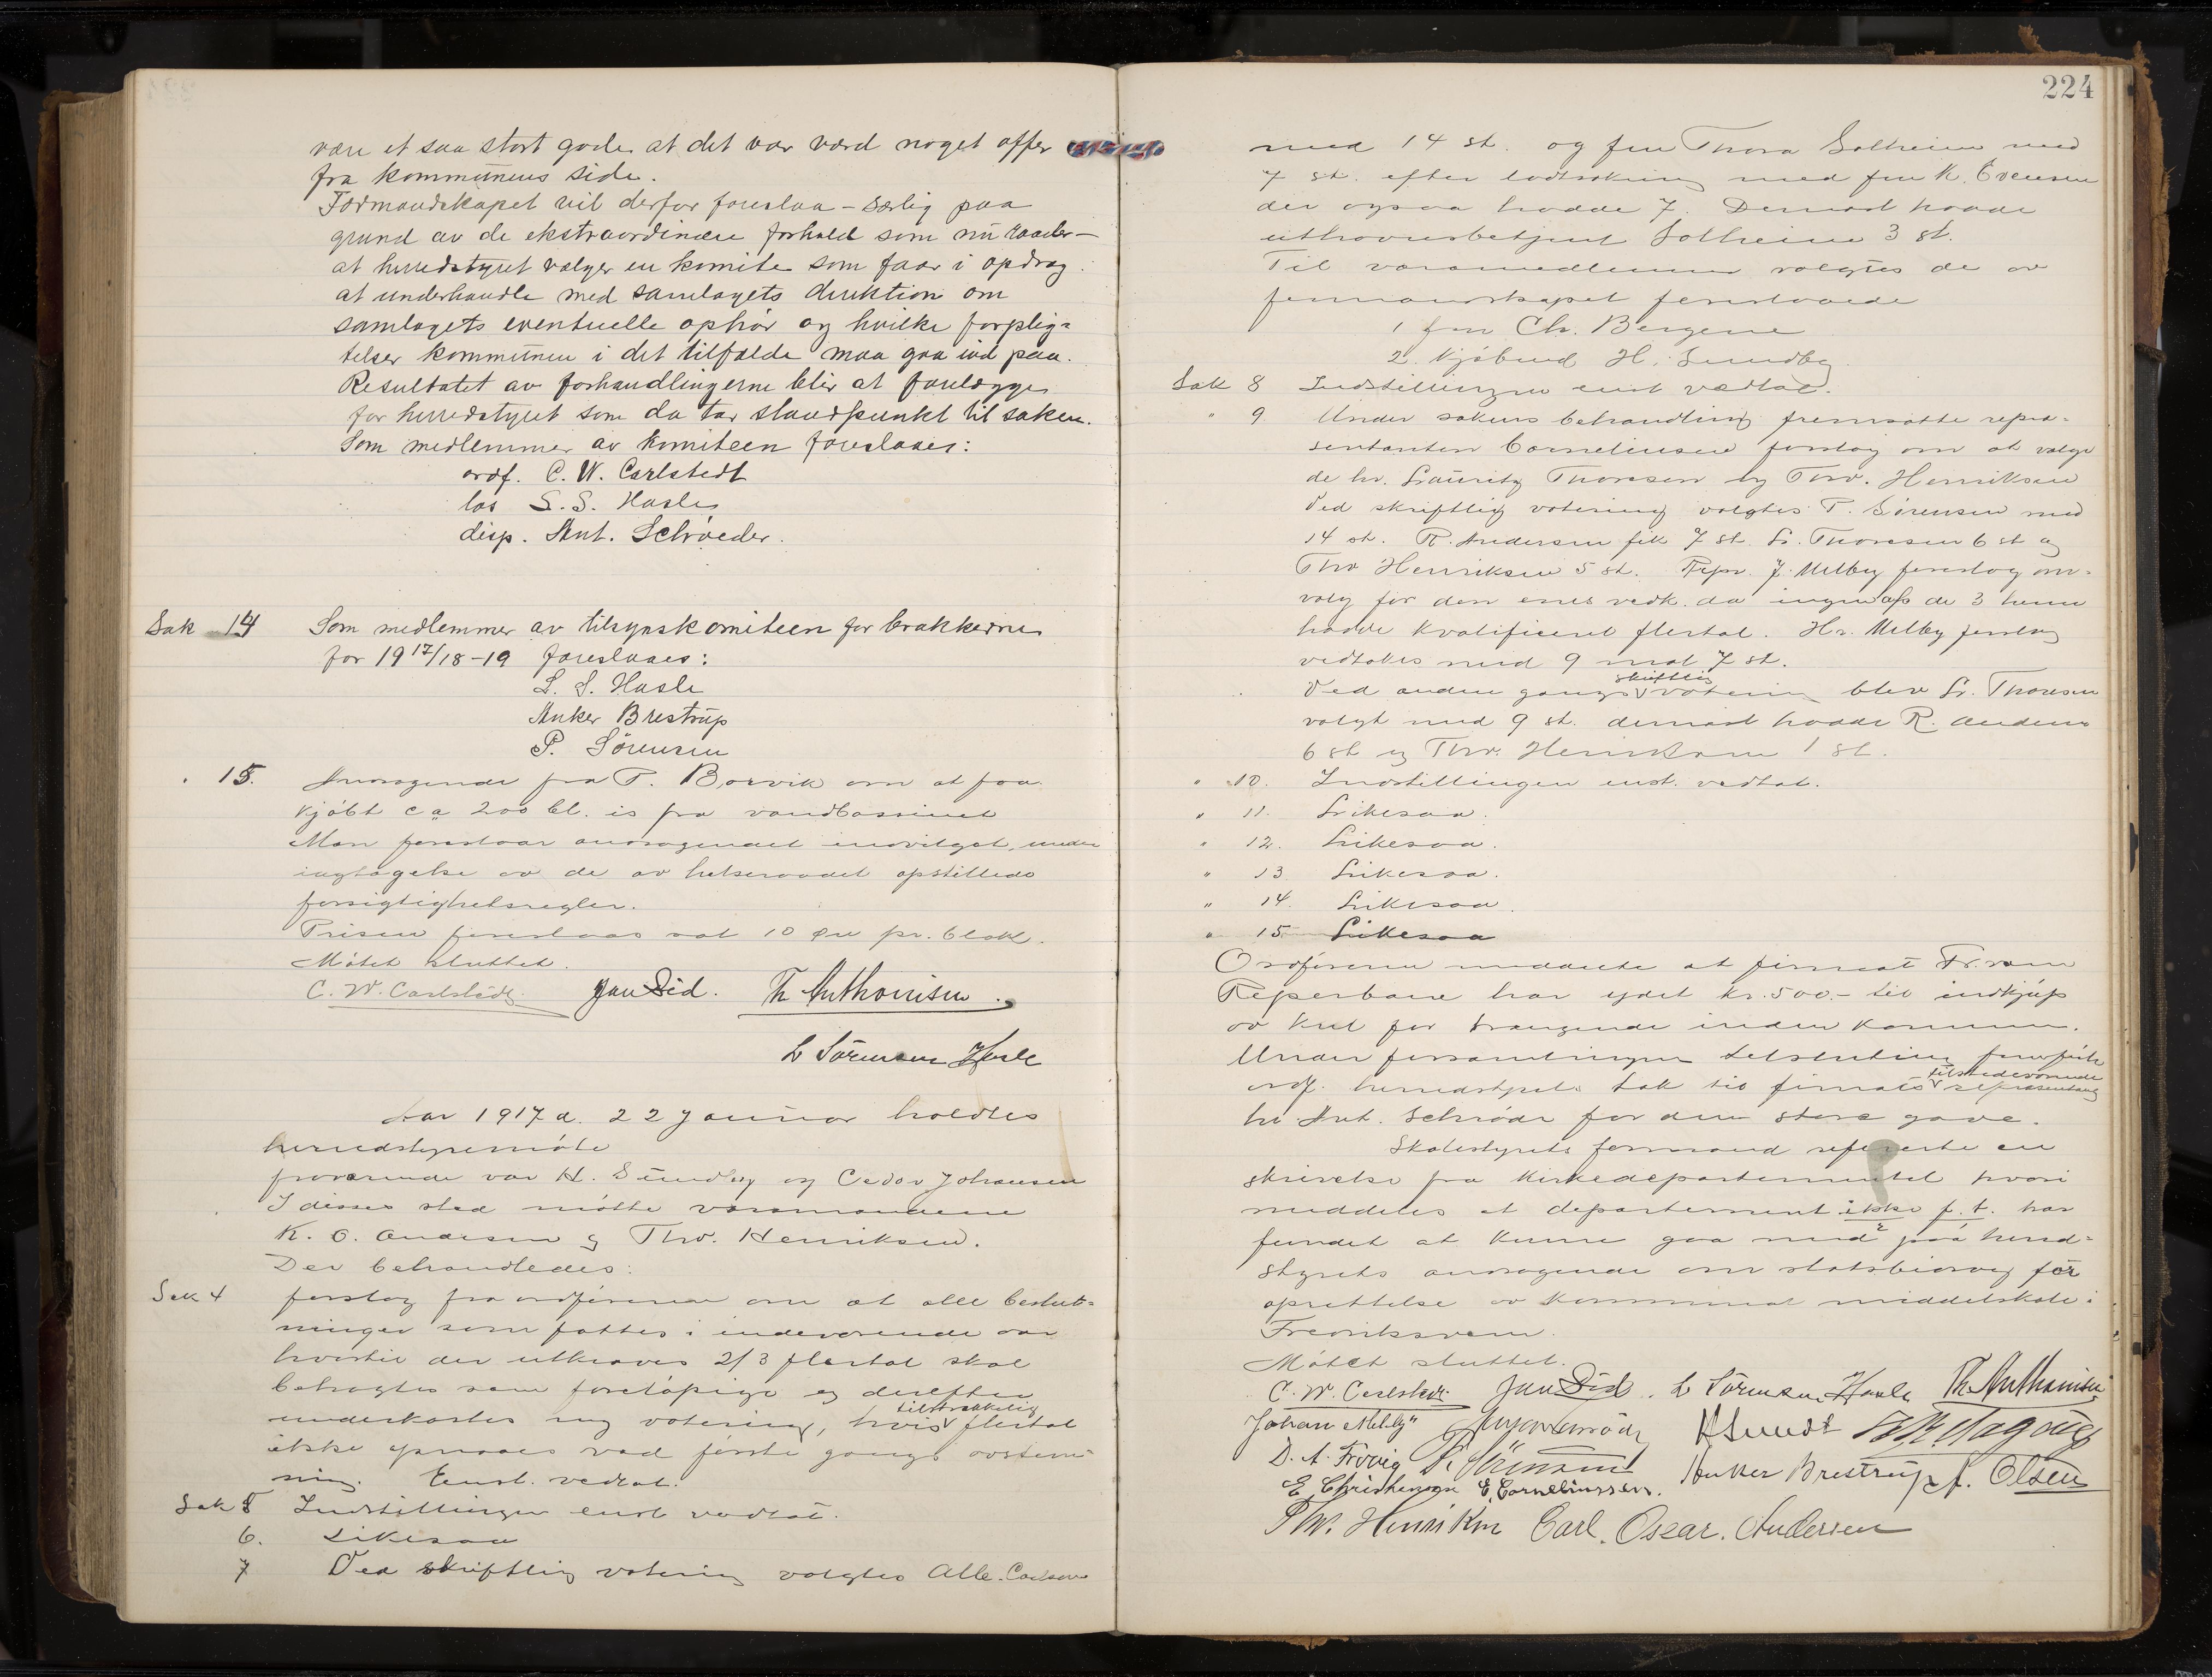 være et saa stort gode at det var værd noget offer
fra kommunens side.
Formandskapet vil derfor foreslaa - særlig paa
grund av de ekstraordinære forhold som nu raader -
at herredstyret vælger en komite som faar i opdrag
at underhandle med samlagets direktion om
samlagets eventuelle ophør og hvilke forplig-
telser kommunen i det tilfælde maa gaa ind paa.
Resultatet av forhandlingerne blir at forelægge
for herredstyret som da tar standpunkt til saken.
Som medlemmer av komiteen foreslaaes:
ordf. C. W. Carlstedt
los S. S. Hasle
disp. Ant. Schrøder.
Sak 14 Som medlemmer av tilsynskomiteen for brakkerne
for 1917/18-19 foreslaaes:
S. S. Hasle
Anker Brestrup
P. Sørensen
" 15. Ansøgende fra T. Borvik om at faa
kjøbt ca 200 bl. is fra vandbassinet
Man foreslaar ansøgendet indvilget, under
iagtagelse av de av helseraadet opstillede
forsigtighetsregler.
Prisen foreslaaes sat 10 øre pr. blok.
Møtet sluttet.
C. W. Carlstedt. Jan Sid. Th Anthonisen.
L Sörensen Hasle
Aar 1917 d. 22 Januar holdtes
herredstyremøte
fraværende var H. Sundby og Oedor Johansen
I disses sted møtte varamændene
K. O. Andersen og Thv. Henriksen.
Der behandledes:
Sak 4 forslag fra ordføreren om at alle beslut-
ninger som fattes i indeværende aar
hvortil der utkræves 2/3 flertal skal
betragtes som foreløpige og derefter
tilstrækkelig
underkastes ny votering, hvis flertal
ikke opnaaes ved første gangs avstem-
ning. Enst. vedtat.
Sak 5 Indstillingen enst vedtat.
6. Likesaa
7 Ved skriftlig votering valgtes Alb. Carlsen
224
med 14 st. og fru Thora Solheim med
7 st. efter lodtrækning med fru K. Evensen
der ogsaa hadde 7. Dernæst hadde
uthavnsbetjent Solheim 3 st.
Til varamedlemmer valgtes de av
formandskapet foreslaaede
1 fru Ch. Bergene
2. Kjøbmd H. Sundby
Sak 8 Indstillingen enst vedtat.
" 9. Under sakens behandling fremsatte repræ-
sentanten Corneliussen forslag om at vælge
de hr. Lauritz Thoresen og Thv. Henriksen
Ved skriftlig votering valgtes T. Sørensen med
14 st. R. Andersen fik 7 st. L. Thoresen 6 st og
Thv Henriksen 5 st. Repr. J. Melby foreslog om-
valg for den enes vedk. da ingen af de 3 herrer
hadde kvalificeret flertal. Hr. Melby forslag
vedtokes med 9 mot 7 st.
skriftlig
Ved anden gangs votering blev L. Thoresen
valgt med 9 st. dernæst hadde R. Andersen
6 st og Thv. Henriksen 1 st.
" 10. Indstillingen enst. vedtat.
" 11. Likesaa.
" 12. Likesaa.
" 13 Likesaa.
" 14. Likesaa.
" 15 Likesaa
Ordføreren meddelte at firmaet Fr.værn
Reperbane har ydet kr. 500.- til indkjøp
av kul for trængende inden kommunen.
Under forsamlingens tilslutning fremførte
tilstedeværende
ordf. herredstyrets tak til firmaets repræsentant
hr Ant. Schrøder for den store gave.
Skolestyrets formand refererte en
skrivelse fra Kirkedepartementet hvori
meddeles at departement ikke f. t. har
fundet at kunne gaa med paa herred-
styrets ansøgende om statsbidrag for
oprettelse av kommunal middelskole i
Fredriksværn.
Møtet sluttet.
C. W. Carlstedt. Jan Sid. L Sörensen Hasle Th. Anthonisen
Johan Melby H Sundt
D. A. Frövig P. Sörensen Anker Brestrup A. Olsen
E. Christensen E. Corneliussen.
Thv. Henriksen Carl. Oscar. Andersen